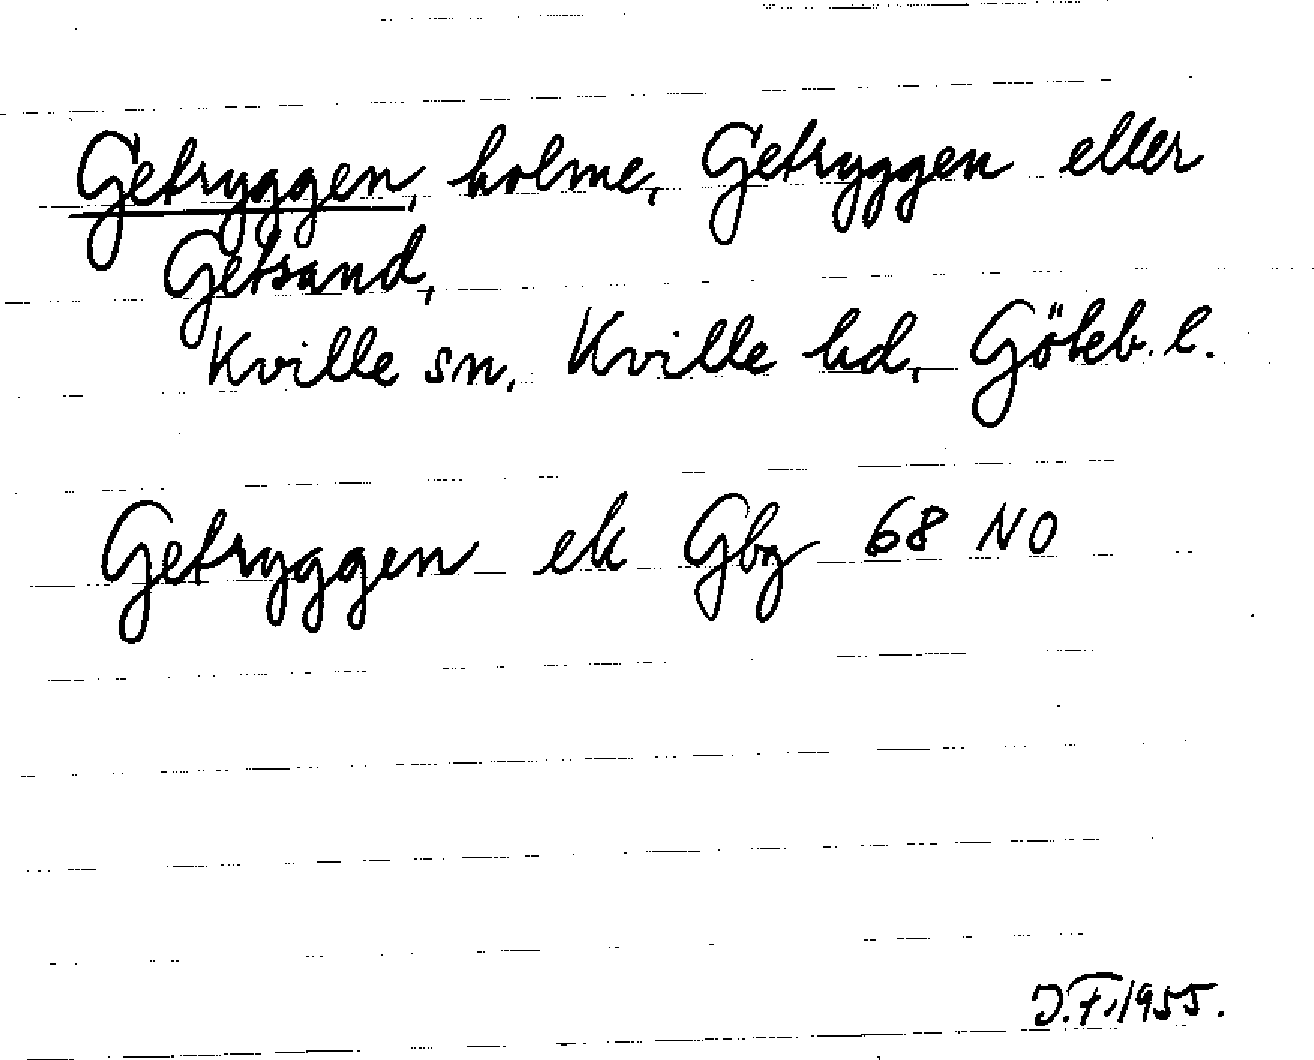 Getryggen, holme, Getryggen eller
Getsand,
Kville sn, Kville hd, Göteb. l.
Getryggen ek Gbg 68 NO
J.F. 1955.